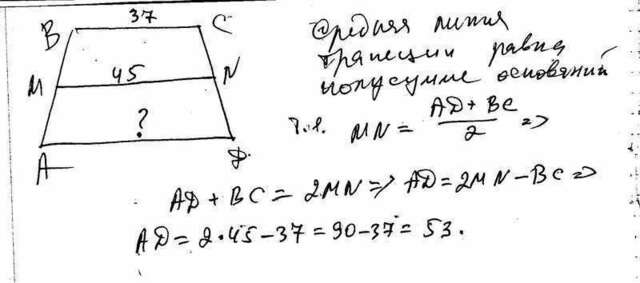 37
B C
M 45 N
?
A D
Средняя линия
трапеции равна
полусумме оснований
т.е. MN = (AD + BC)/2 =>
AD + BC = 2MN => AD = 2MN - BC =>
AD = 2•45 - 37 = 90 - 37 = 53.